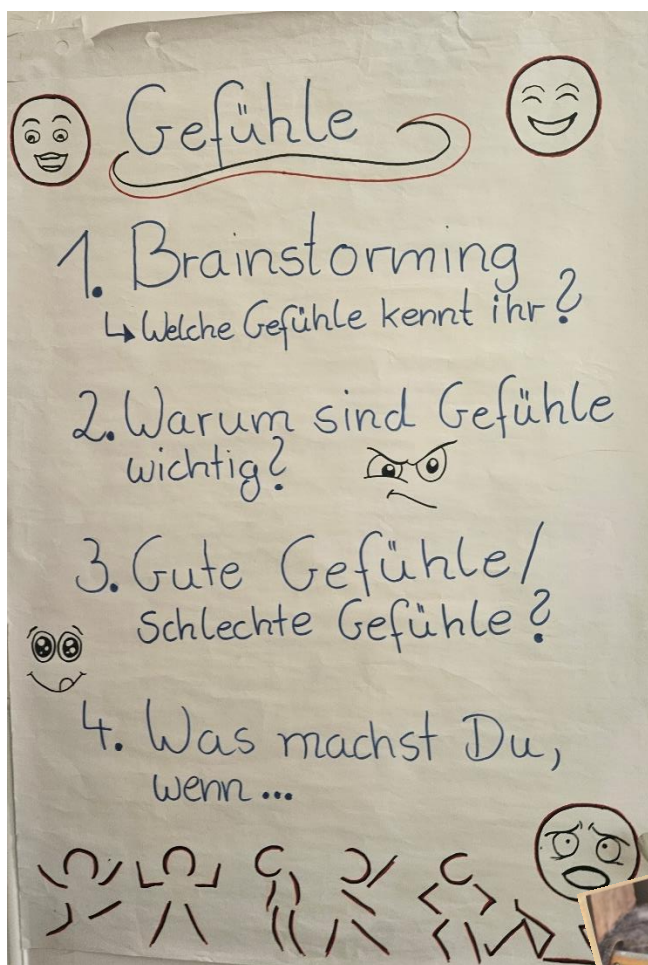 Gefühle
1. Brainstorming
↳ Welche Gefühle kennt ihr?
2. Warum sind Gefühle
wichtig?
3. Gute Gefühle/
Schlechte Gefühle?
4. Was machst Du,
wenn...